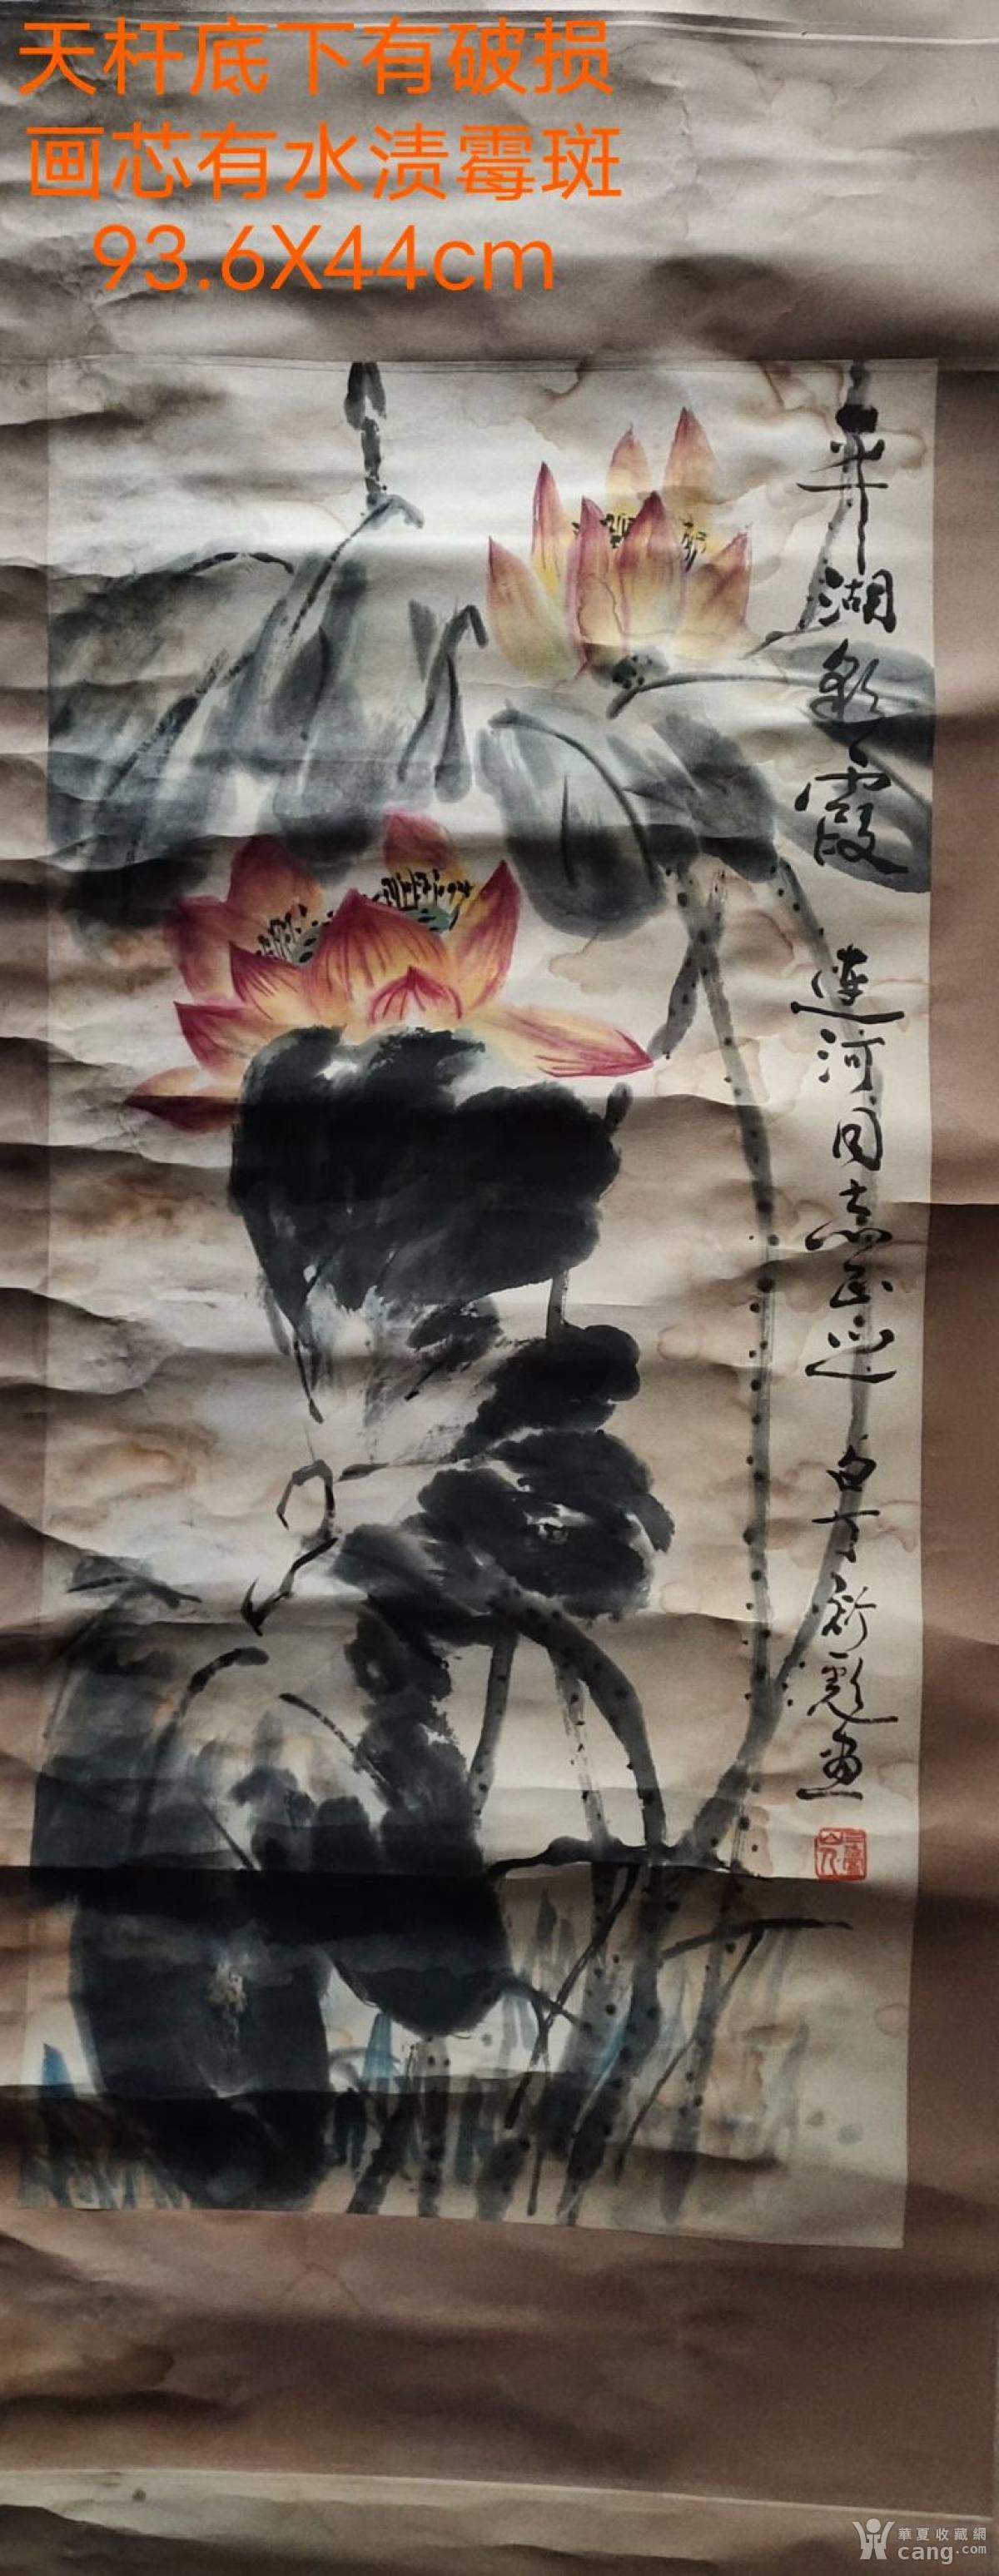 天杆底下有破损
画芯有水渍霉斑
93.6X44cm
平湖彩霞 连河同志正之 白丁新彪画
華夏收藏網
cang.com